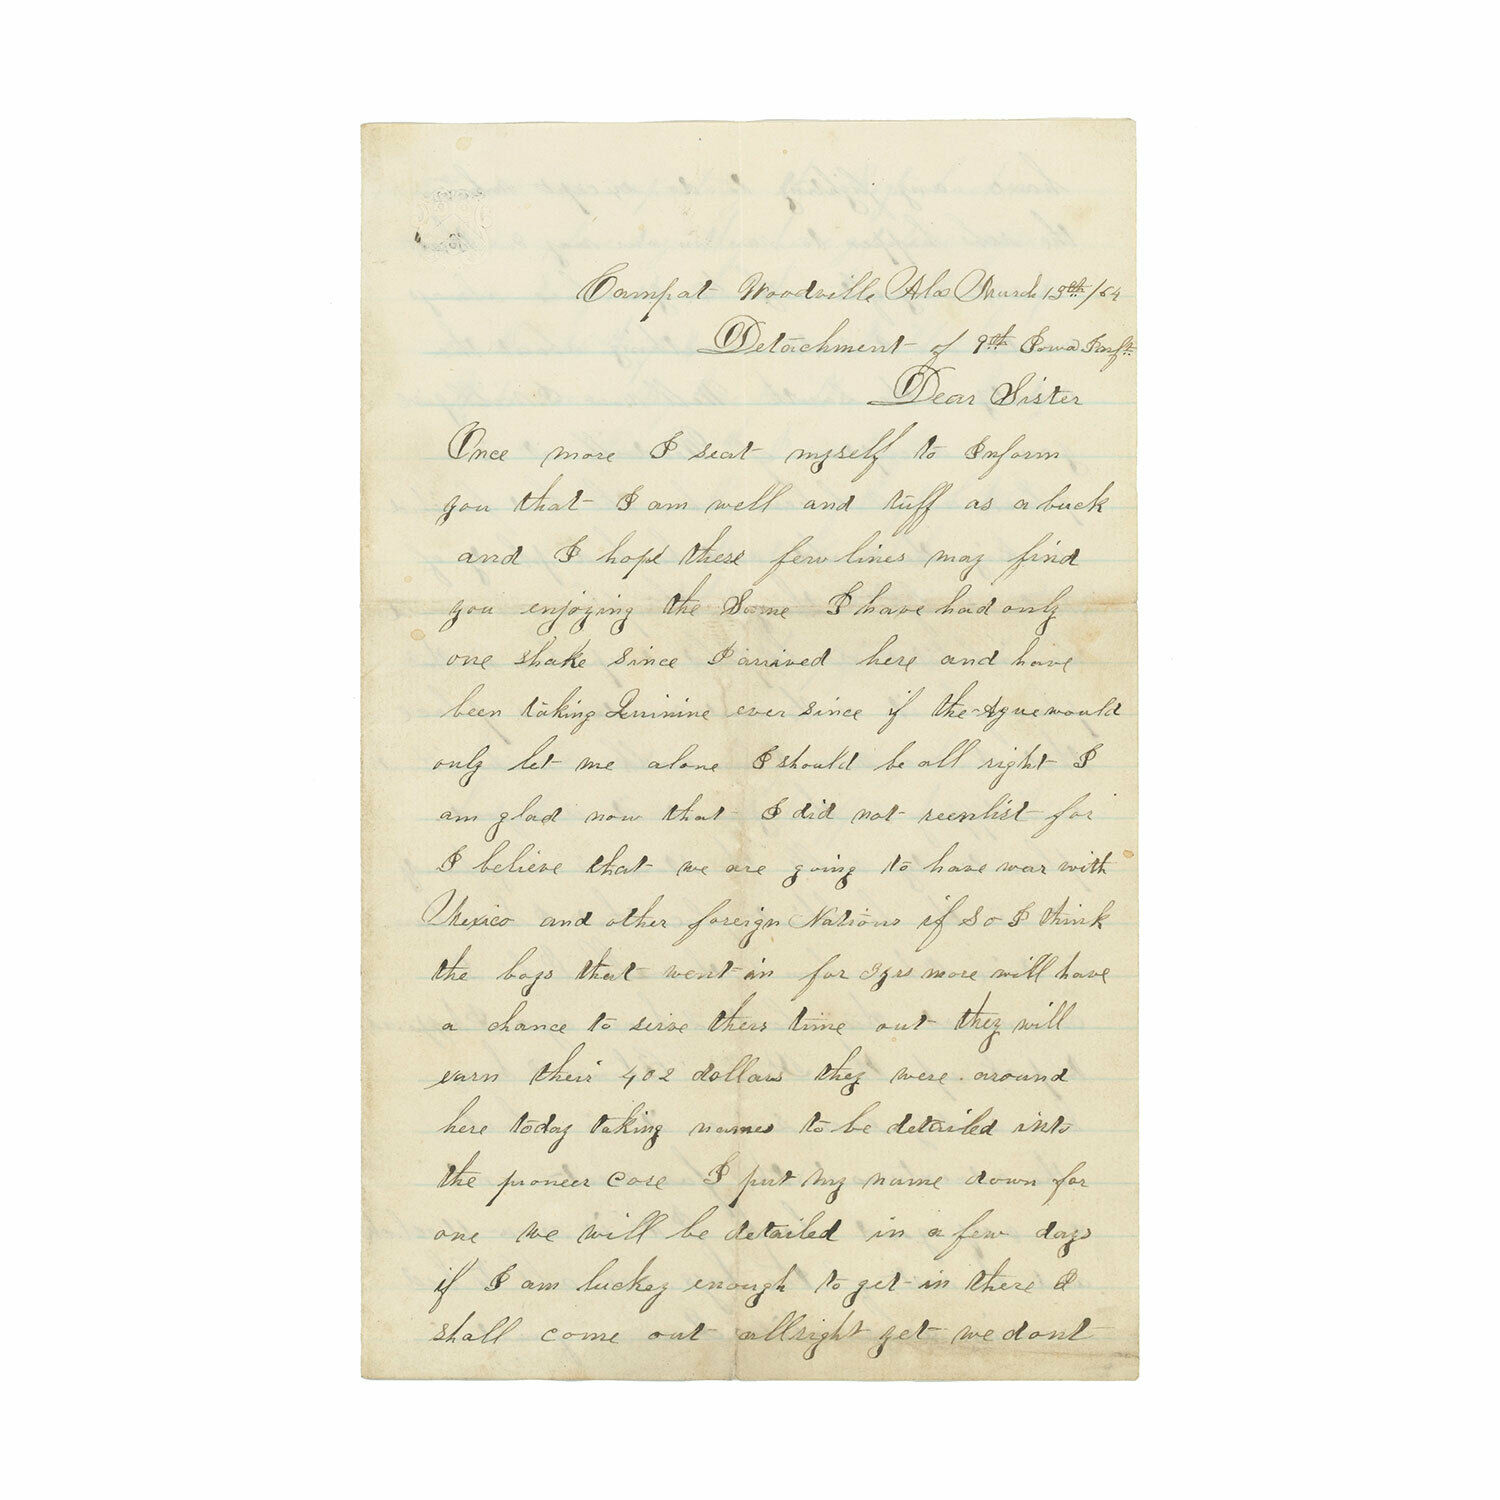 Camp at Woodville Ala March 13th /64
Detachment of 9th Iowa Inft
Dear Sister
Once more I seat myself to Inform
you that I am well and tuff as a buck
and I hope these few lines may find
you enjoying the Same I have had only
one shake since I arrived here and have
been taking Quinine ever since if the Ague would
only let me alone I should be all right I
am glad now that I did not reenlist for
I believe that we are going to have war with
Mexico and other foreign Nations if So I think
the boys that went in for 3 yrs more will have
a chance to serve thers time out they will
earn their 402 dollars they were around
here today taking names to be detailed into
the pioneer Core I put my name down for
one we will be detailed in a few days
if I am luckey enough to get in there I
shall come out allright yet we dont